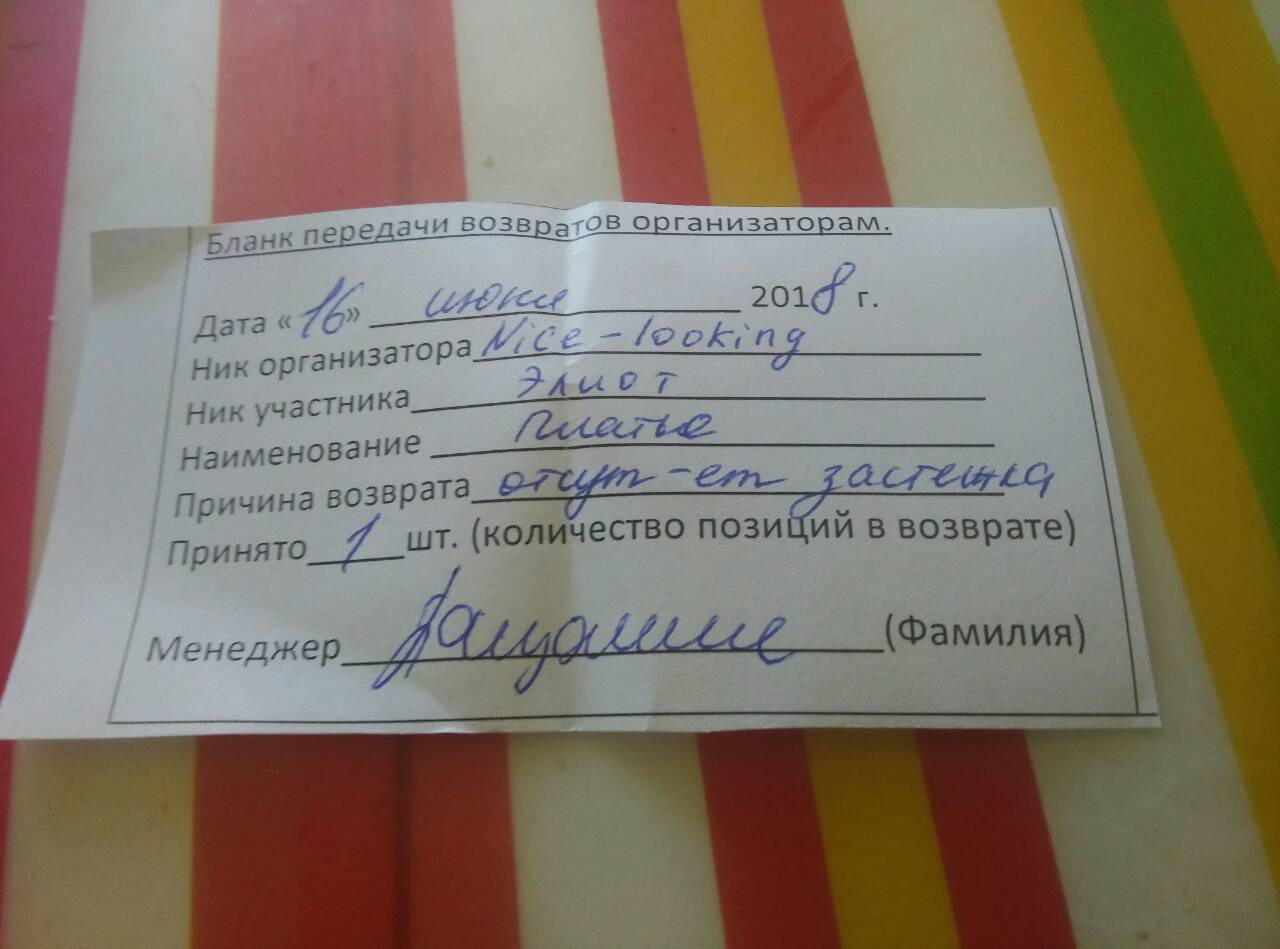 Бланк передачи возвратов организаторам.
Дата «16» июня 2018 г.
Ник организатора Nice-looking
Ник участника Элиот
Наименование Платье
Причина возврата отсут-ет застежка
Принято 1 шт. (количество позиций в возврате)
Менеджер (Фамилия)